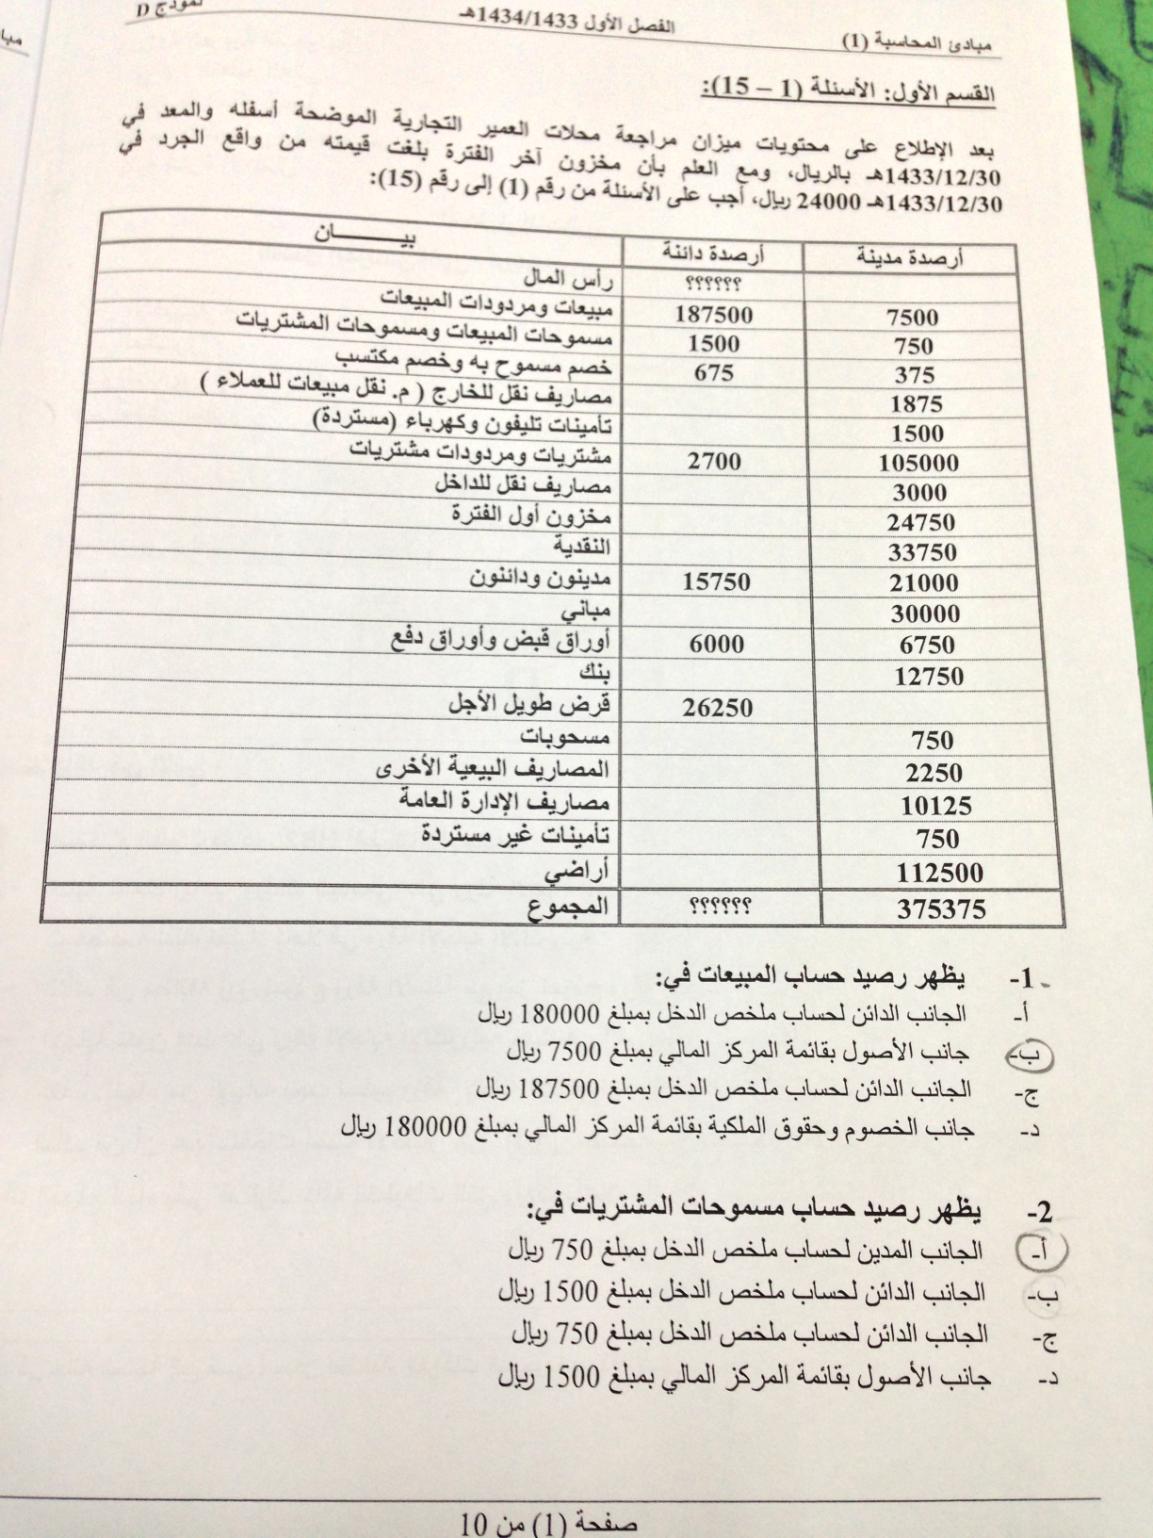 مبادئ المحاسبة (1) الفصل الأول 1434/1433هـ نموذج D
القسم الأول: الأسئلة (1 – 15):
بعد الإطلاع على محتويات ميزان مراجعة محلات العمير التجارية الموضحة أسفله والمعد في
1433/12/30هـ بالريال، ومع العلم بأن مخزون آخر الفترة بلغت قيمته من واقع الجرد في
1433/12/30هـ 24000 ريال، أجب على الأسئلة من رقم (1) إلى رقم (15):
أرصدة مدينة أرصدة دائنة بيـــــــان
؟؟؟؟؟؟ رأس المال
7500 187500 مبيعات ومردودات المبيعات
750 1500 مسموحات المبيعات ومسموحات المشتريات
375 675 خصم مسموح به وخصم مكتسب
1875 مصاريف نقل للخارج ( م. نقل مبيعات للعملاء )
1500 تأمينات تليفون وكهرباء (مستردة)
105000 2700 مشتريات ومردودات مشتريات
3000 مصاريف نقل للداخل
24750 مخزون أول الفترة
33750 النقدية
21000 15750 مدينون ودائنون
30000 مباني
6750 6000 أوراق قبض وأوراق دفع
12750 بنك
26250 قرض طويل الأجل
750 مسحوبات
2250 المصاريف البيعية الأخرى
10125 مصاريف الإدارة العامة
750 تأمينات غير مستردة
112500 أراضي
375375 ؟؟؟؟؟؟ المجموع
1- يظهر رصيد حساب المبيعات في:
أ- الجانب الدائن لحساب ملخص الدخل بمبلغ 180000 ريال
ب- جانب الأصول بقائمة المركز المالي بمبلغ 7500 ريال
ج- الجانب الدائن لحساب ملخص الدخل بمبلغ 187500 ريال
د- جانب الخصوم وحقوق الملكية بقائمة المركز المالي بمبلغ 180000 ريال
2- يظهر رصيد حساب مسموحات المشتريات في:
أ- الجانب المدين لحساب ملخص الدخل بمبلغ 750 ريال
ب- الجانب الدائن لحساب ملخص الدخل بمبلغ 1500 ريال
ج- الجانب الدائن لحساب ملخص الدخل بمبلغ 750 ريال
د- جانب الأصول بقائمة المركز المالي بمبلغ 1500 ريال
صفحة (1) من 10